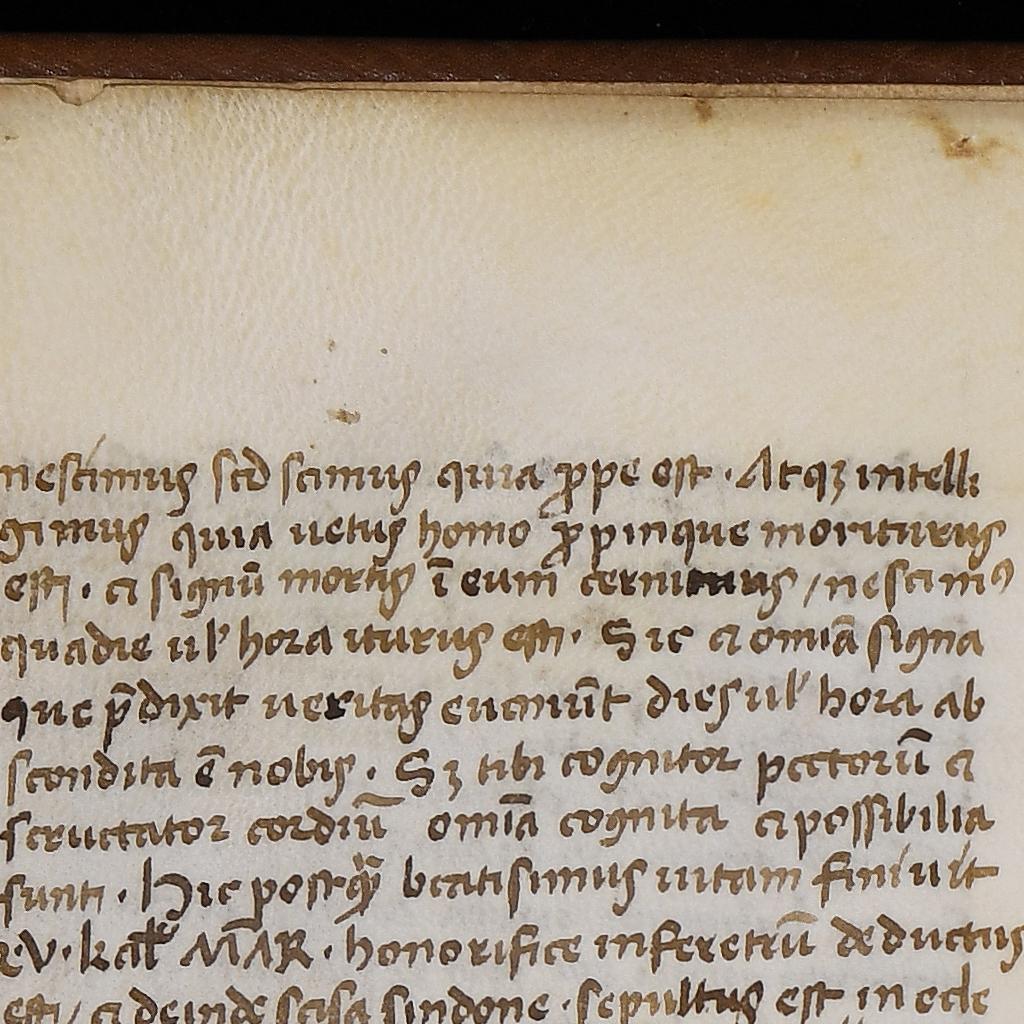 nescimus sed scimus quia ꝓpe est · Atqꝫ intelli
gimus quia uetus homo ꝓpinque moriturus
est · et signū mortis ī eum cernimus / nescimꝰ
qua die ul' hora iturus est · Sic et omīa signa
que p̄dixit ueritas eueniūt dies ul' hora ab
scondita ē nobis · Sꝫ tibi cognitor pectorū et
scructator cordiū omīa cognita et possibilia
sunt · Hic postqͣꝫ beatisimus uitam finiuit
V · kal' MAR · honorifice in feretrū deductus
est / et deinde scisa sindone · sepultus est in ecle